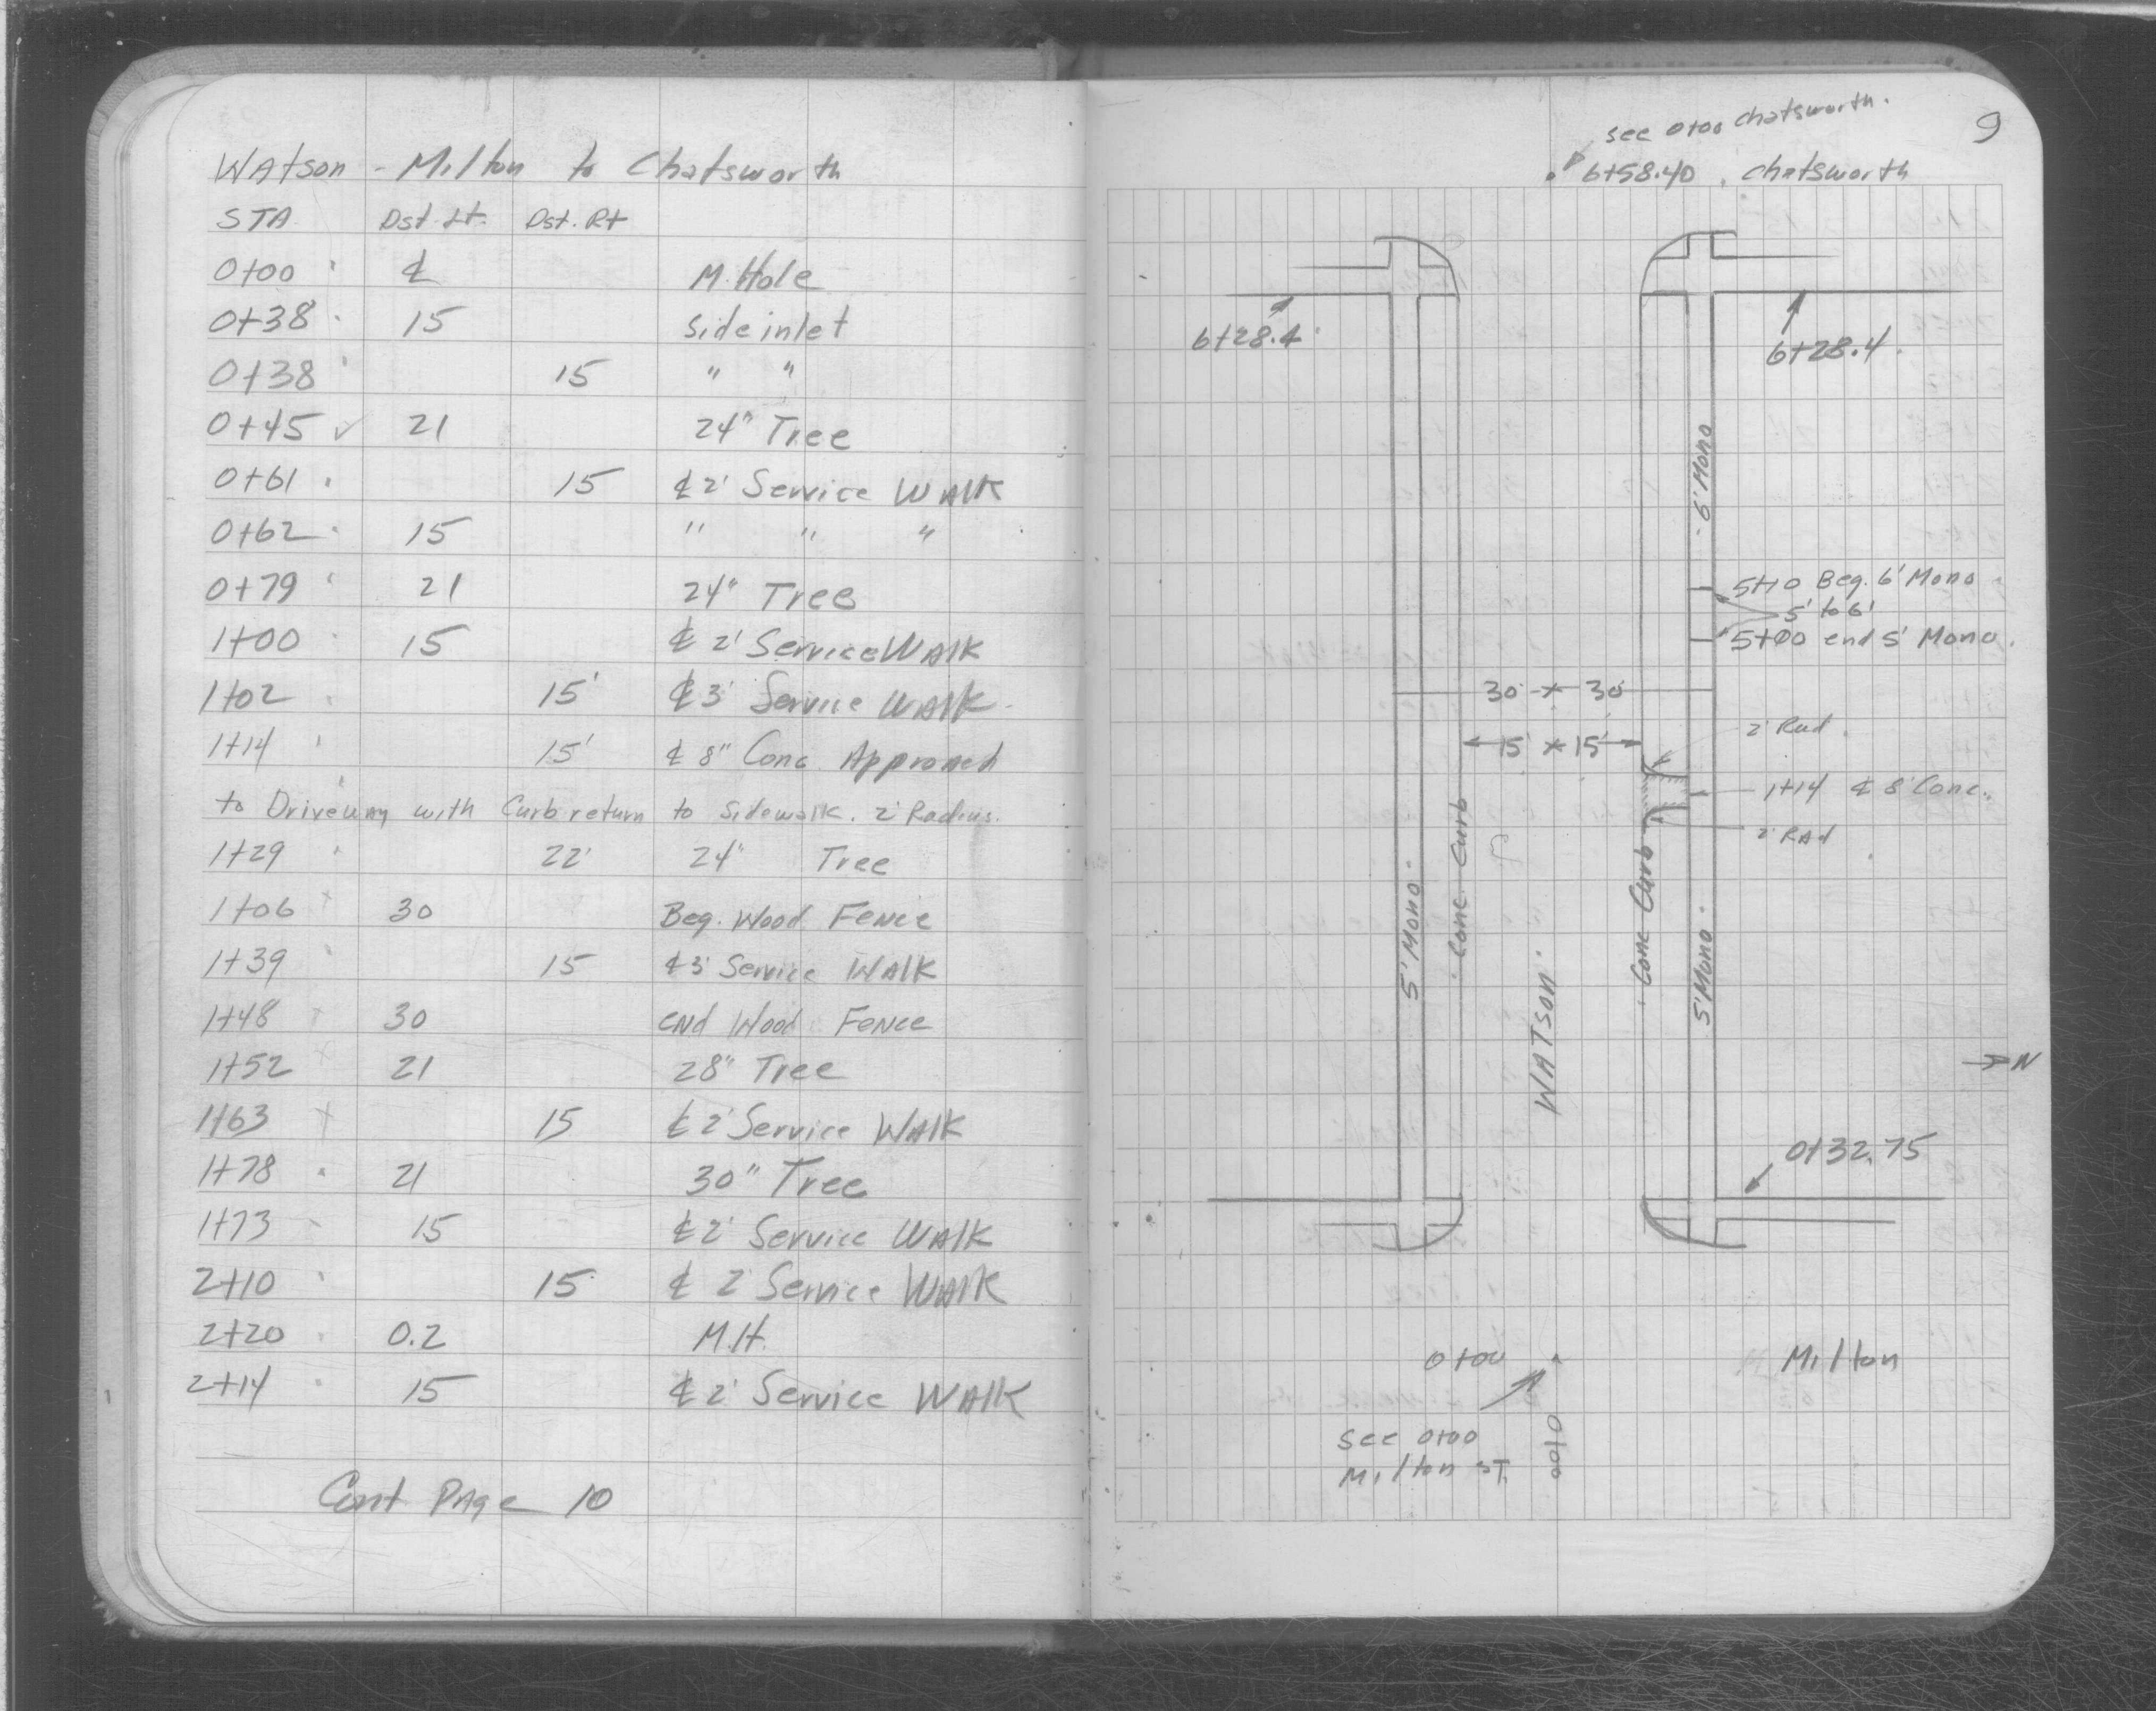 WAtson - Milton to Chatsworth
STA Dst. Lt. Dst. Rt
0+00 ℄ M. Hole
0+38 15 Side inlet
0+38 15 " "
0+45 ✓ 21 24" Tree
0+61 15 ℄ 2' Service WAlK
0+62 15 " " "
0+79 21 24" Tree
1+00 15 ℄ 2' Service WAlK
1+02 15' ℄ 3' Service WAlK
1+14 15' ℄ 8" Conc Approach
to Driveway with Curb return to Sidewalk. 2' Radius.
1+29 22' 24" Tree
1+06 30 Beg. Wood Fence
1+39 15 ℄ 3' Service WAlK
1+48 30 end Wood Fence
1+52 21 28" Tree
1+63 15 ℄ 2' Service WAlK
1+78 21 30" Tree
1+73 15 ℄ 2' Service WAlK
2+10 15 ℄ 2' Service WAlK
2+20 0.2 M.H.
2+14 15 ℄ 2' Service WAlK
Cont PAge 10
9
see 0+00 Chatsworth.
6+58.40 Chatsworth
6+28.4
6+28.4
6' Mono
5+10 Beg. 6' Mono
5' to 6'
5+00 end 5' Mono.
30 * 30
15' * 15'
2' Rad
1+14 ℄ 8' Conc.
2' RAd
5' Mono
Conc. Curb
WATSon
Conc Curb
5' Mono
N
0+32.75
0+00
Milton
See 0+00
Milton ST.
0+00